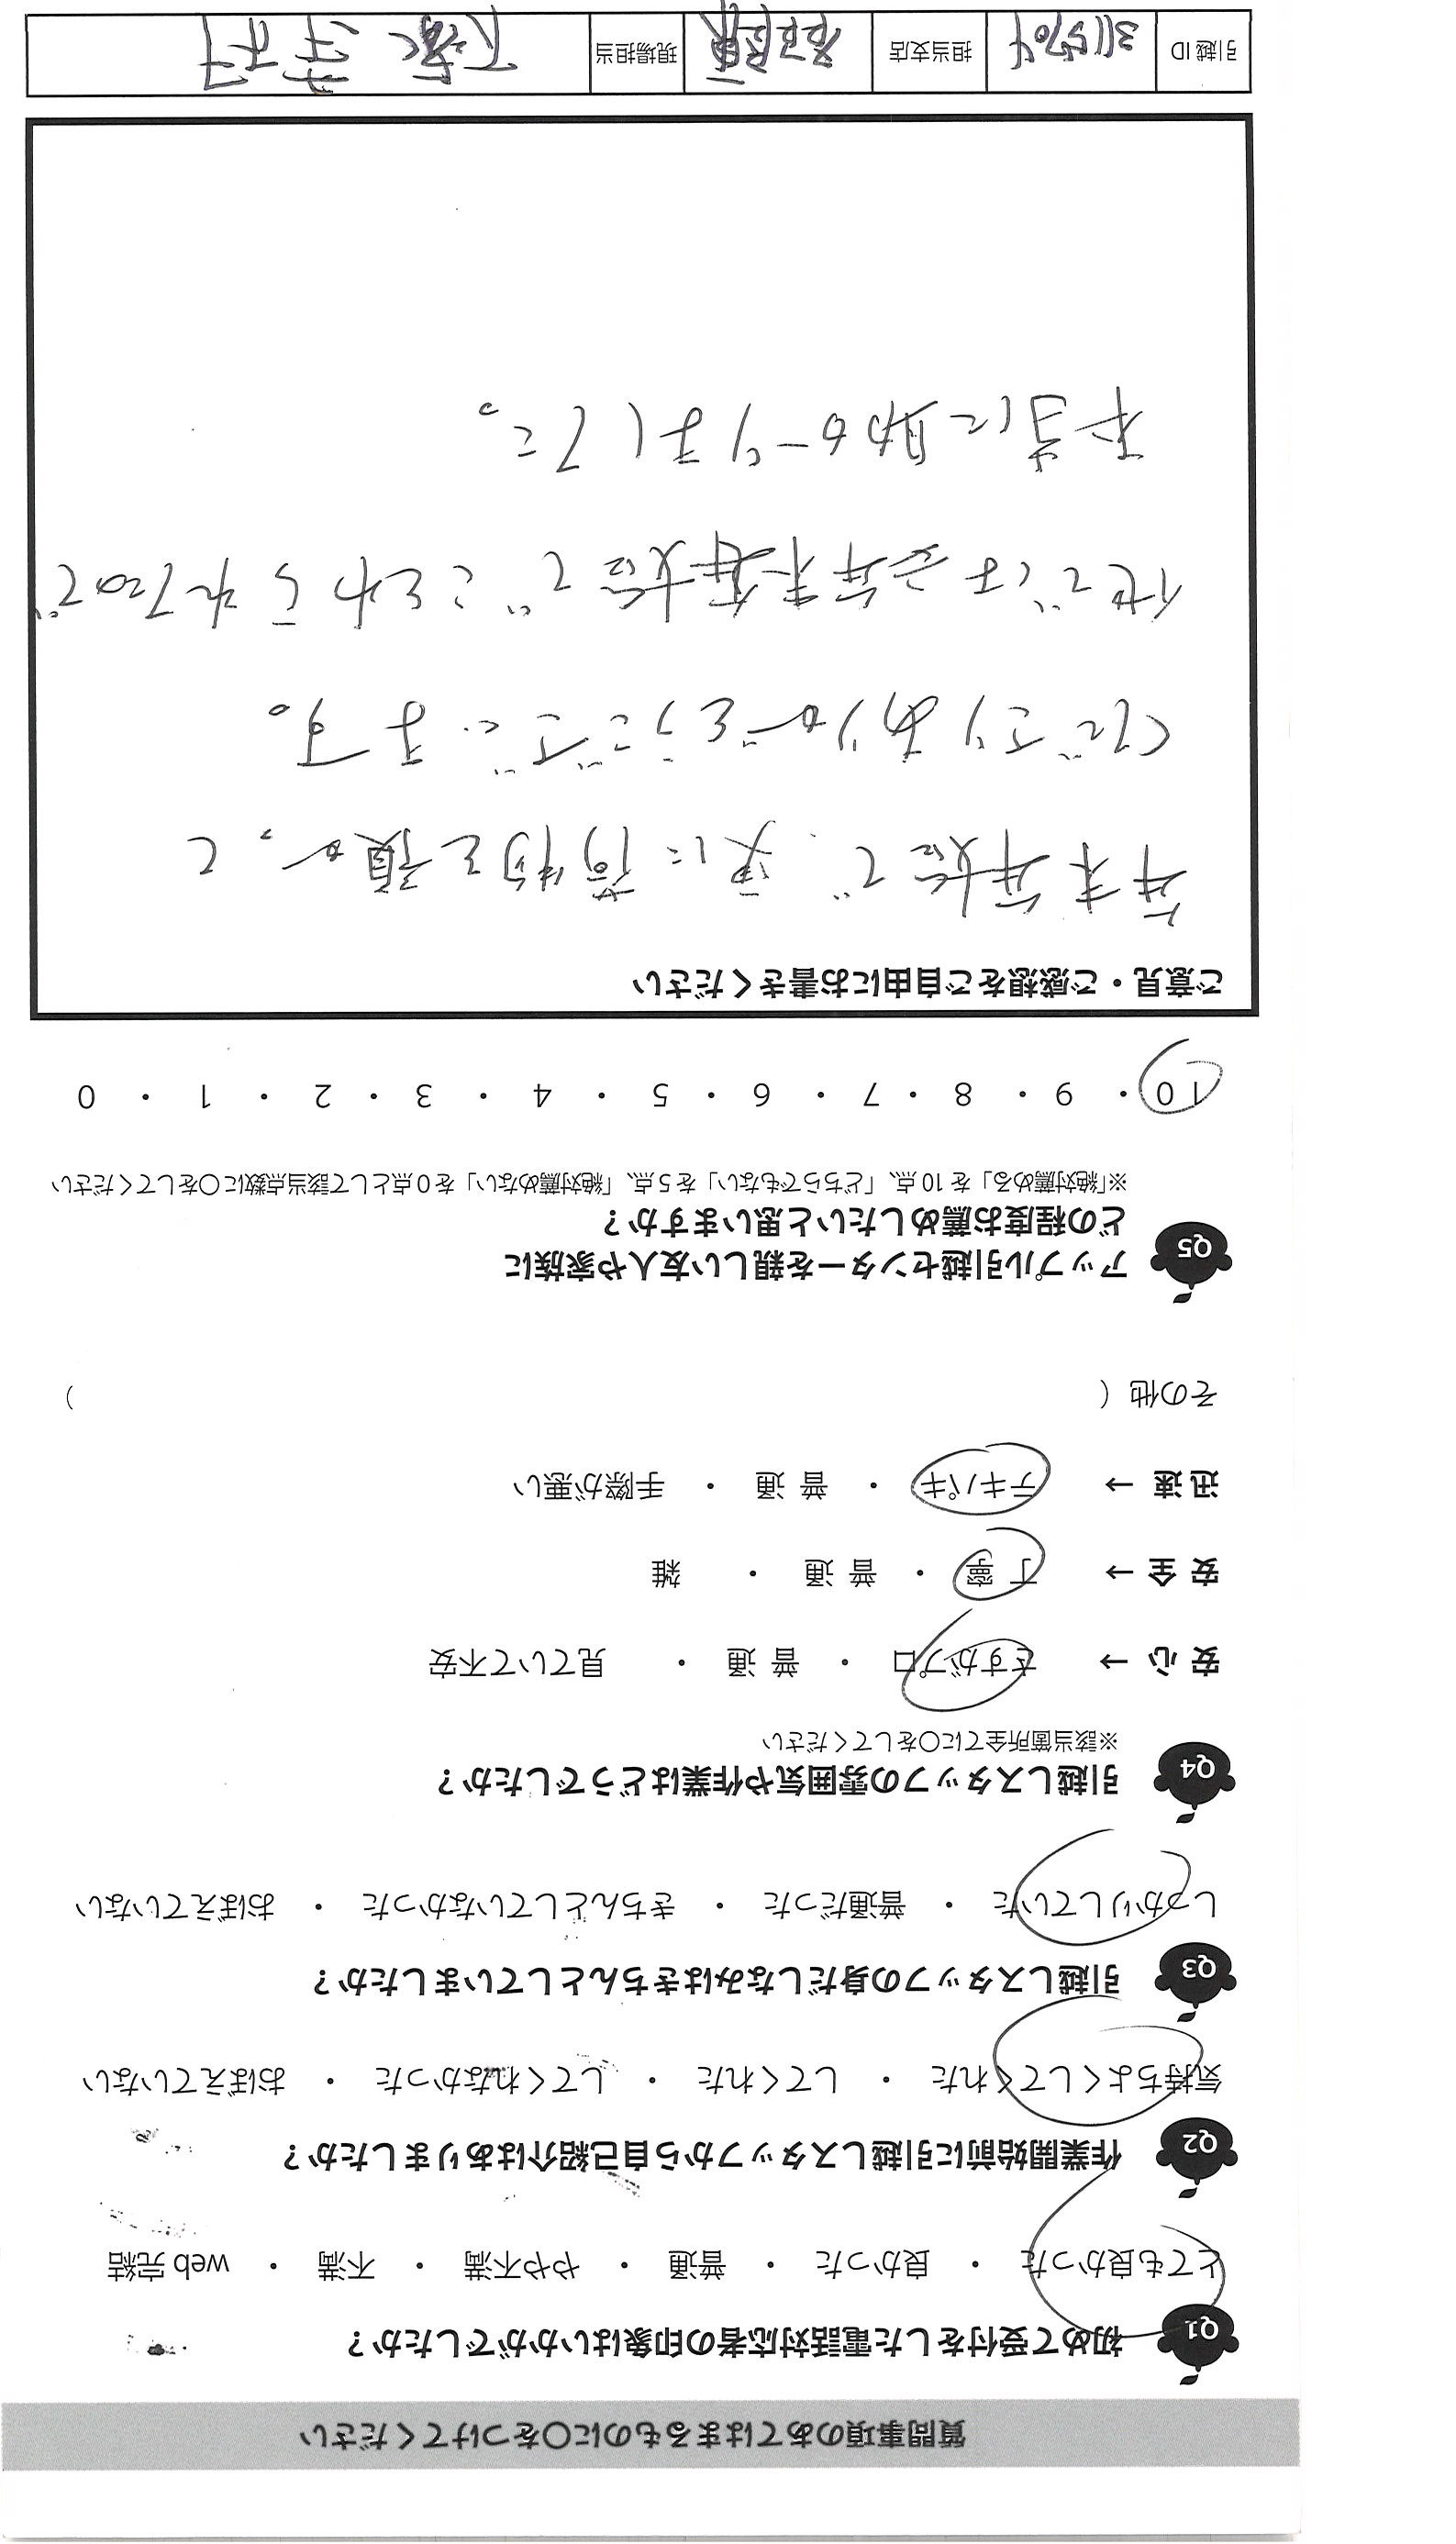 質問事項のあてはまるものに〇をつけてください
Q1 初めて受付をした電話対応者の印象はいかがでしたか？
とても良かった ・ 良かった ・ 普通 ・ やや不満 ・ 不満 ・ web 完結
Q2 作業開始前に引越しスタッフから自己紹介はありましたか？
気持ちよくしてくれた ・ してくれた ・ してくれなかった ・ おぼえていない
Q3 引越しスタッフの身だしなみはきちんとしていましたか？
しっかりしていた ・ 普通だった ・ きちんとしていなかった ・ おぼえていない
Q4 引越しスタッフの雰囲気や作業はどうでしたか？
※該当箇所全てに〇をしてください
安 心 → さすがプロ ・ 普 通 ・ 見ていて不安
安 全 → 丁 寧 ・ 普 通 ・ 雑
迅 速 → テキパキ ・ 普 通 ・ 手際が悪い
その他（ ）
Q5 アップル引越センターを親しい友人や家族に
どの程度お薦めしたいと思いますか？
※「絶対薦める」を 10 点、「どちらでもない」を 5 点、「絶対薦めない」を 0 点として該当点数に〇をしてください
10 ・ 9 ・ 8 ・ 7 ・ 6 ・ 5 ・ 4 ・ 3 ・ 2 ・ 1 ・ 0
ご意見・ご感想をご自由にお書きください
年末年始で、更に荷物を預かって
くださりありがとうございます。
他では年末年始でことわられたので
本当に助かりました。
引越 ID 担当支店 現場担当